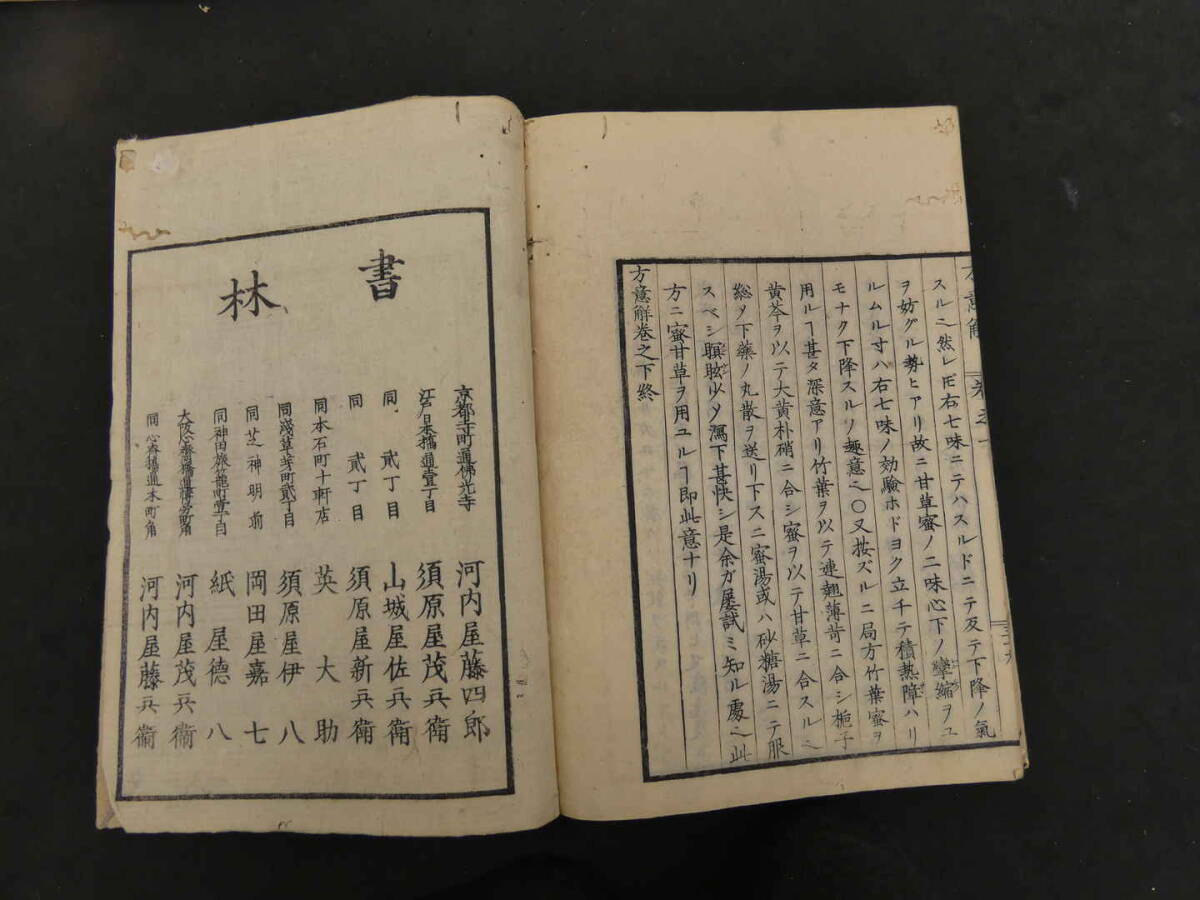 スルﾆ然レ𪜈右七味ニテハスルドニテ反テ下降ノ氣
ヲ妨グル勢ヒアリ故ニ甘草蜜ノ二味心下ノ攣縮ヲユ
ルムル寸ハ右七味ノ効驗ホドヨク立チテ積熱障ハリ
モナク下降スルソ趣意之〇又按ズルニ局方竹葉蜜ヲ
用ルヿ甚タ深意アリ竹葉ヲ以テ連翹薄苛ニ合シ梔子
黄芩ヲ以テ大黄朴硝ニ合シ蜜ヲ以テ甘草ニ合スル之
総ノ下藥ノ丸散ヲ送リ下スニ蜜湯或ハ砂糖湯ニテ服
スベシ瞑眩少ソ瀉下甚快シ是余ガ屡試ミ知ル處之此
方ニ蜜甘草ヲ用ユルヿ即此意ナリ
方意解巻之下終
書林
京都寺町通佛光寺 河内屋藤四郎
江戸日本橋通壹丁目 須原屋茂兵衛
同 貳丁目 山城屋佐兵衛
同 貳丁目 須原屋新兵衛
同本石町十軒店 英大助
同淺草茅町貳丁目 須原屋伊八
同芝神明前 岡田屋嘉七
同神田旅籠町壹丁目 紙屋德八
大阪心斎橋通博労町角 河内屋茂兵衛
同心斎橋通本町角 河内屋藤兵衛